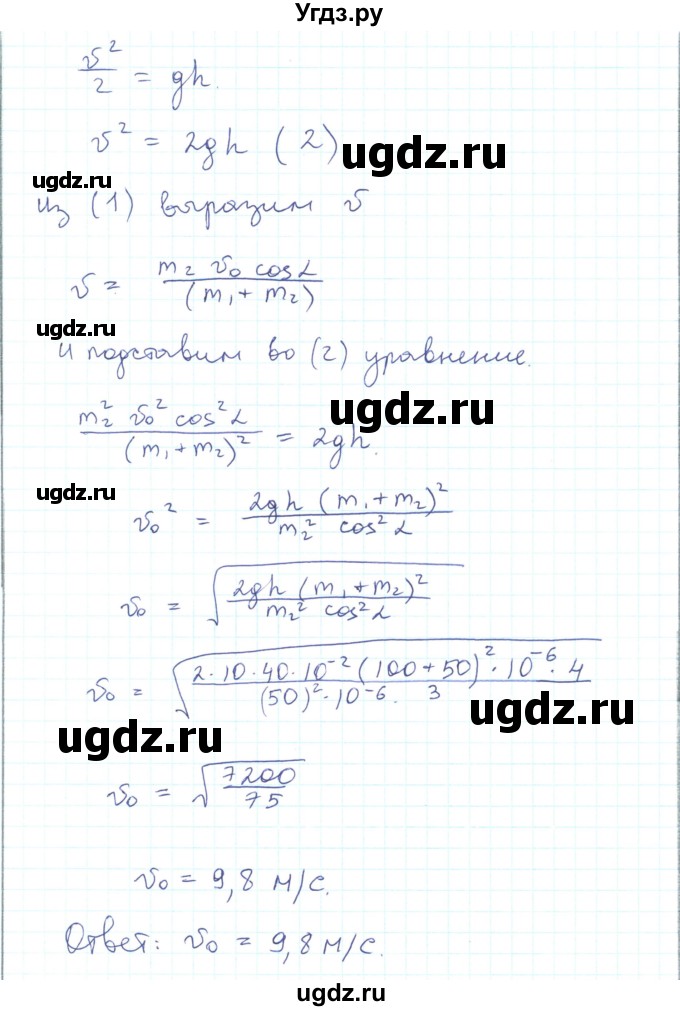 Угдз.ру
v²/2 = gh.
v² = 2gh (2)
ugdz.ru
ugdz.ru
Из (1) выразим v
v = m₂ v₀ cosα / (m₁ + m₂)
ugdz.ru
И подставим во (2) уравнение.
ugdz.ru
m₂² v₀² cos²α / (m₁ + m₂)² = 2gh.
ugdz.ru
v₀² = 2gh (m₁ + m₂)² / m₂² cos²α
v₀ = √(2gh (m₁ + m₂)² / m₂² cos²α)
v₀ = √(2·10·40·10⁻² (100 + 50)² · 10⁻⁶ · 4 / (50)² · 10⁻⁶ · 3)
ugdz.ru
ugdz.ru
v₀ = √(7200 / 75)
v₀ = 9,8 м/с.
Ответ: v₀ = 9,8 м/с.
ugdz.ru